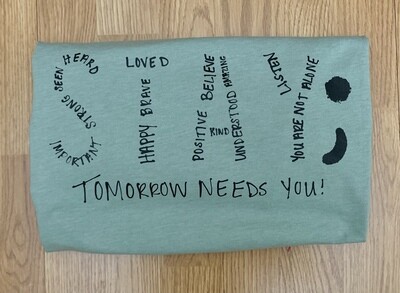 HEARD
SEEN
STRONG
IMPORTANT
LOVED
HAPPY BRAVE
POSITIVE BELIEVE
KIND
UNDERSTOOD AMAZING
LISTEN
YOU ARE NOT ALONE
TOMORROW NEEDS YOU!